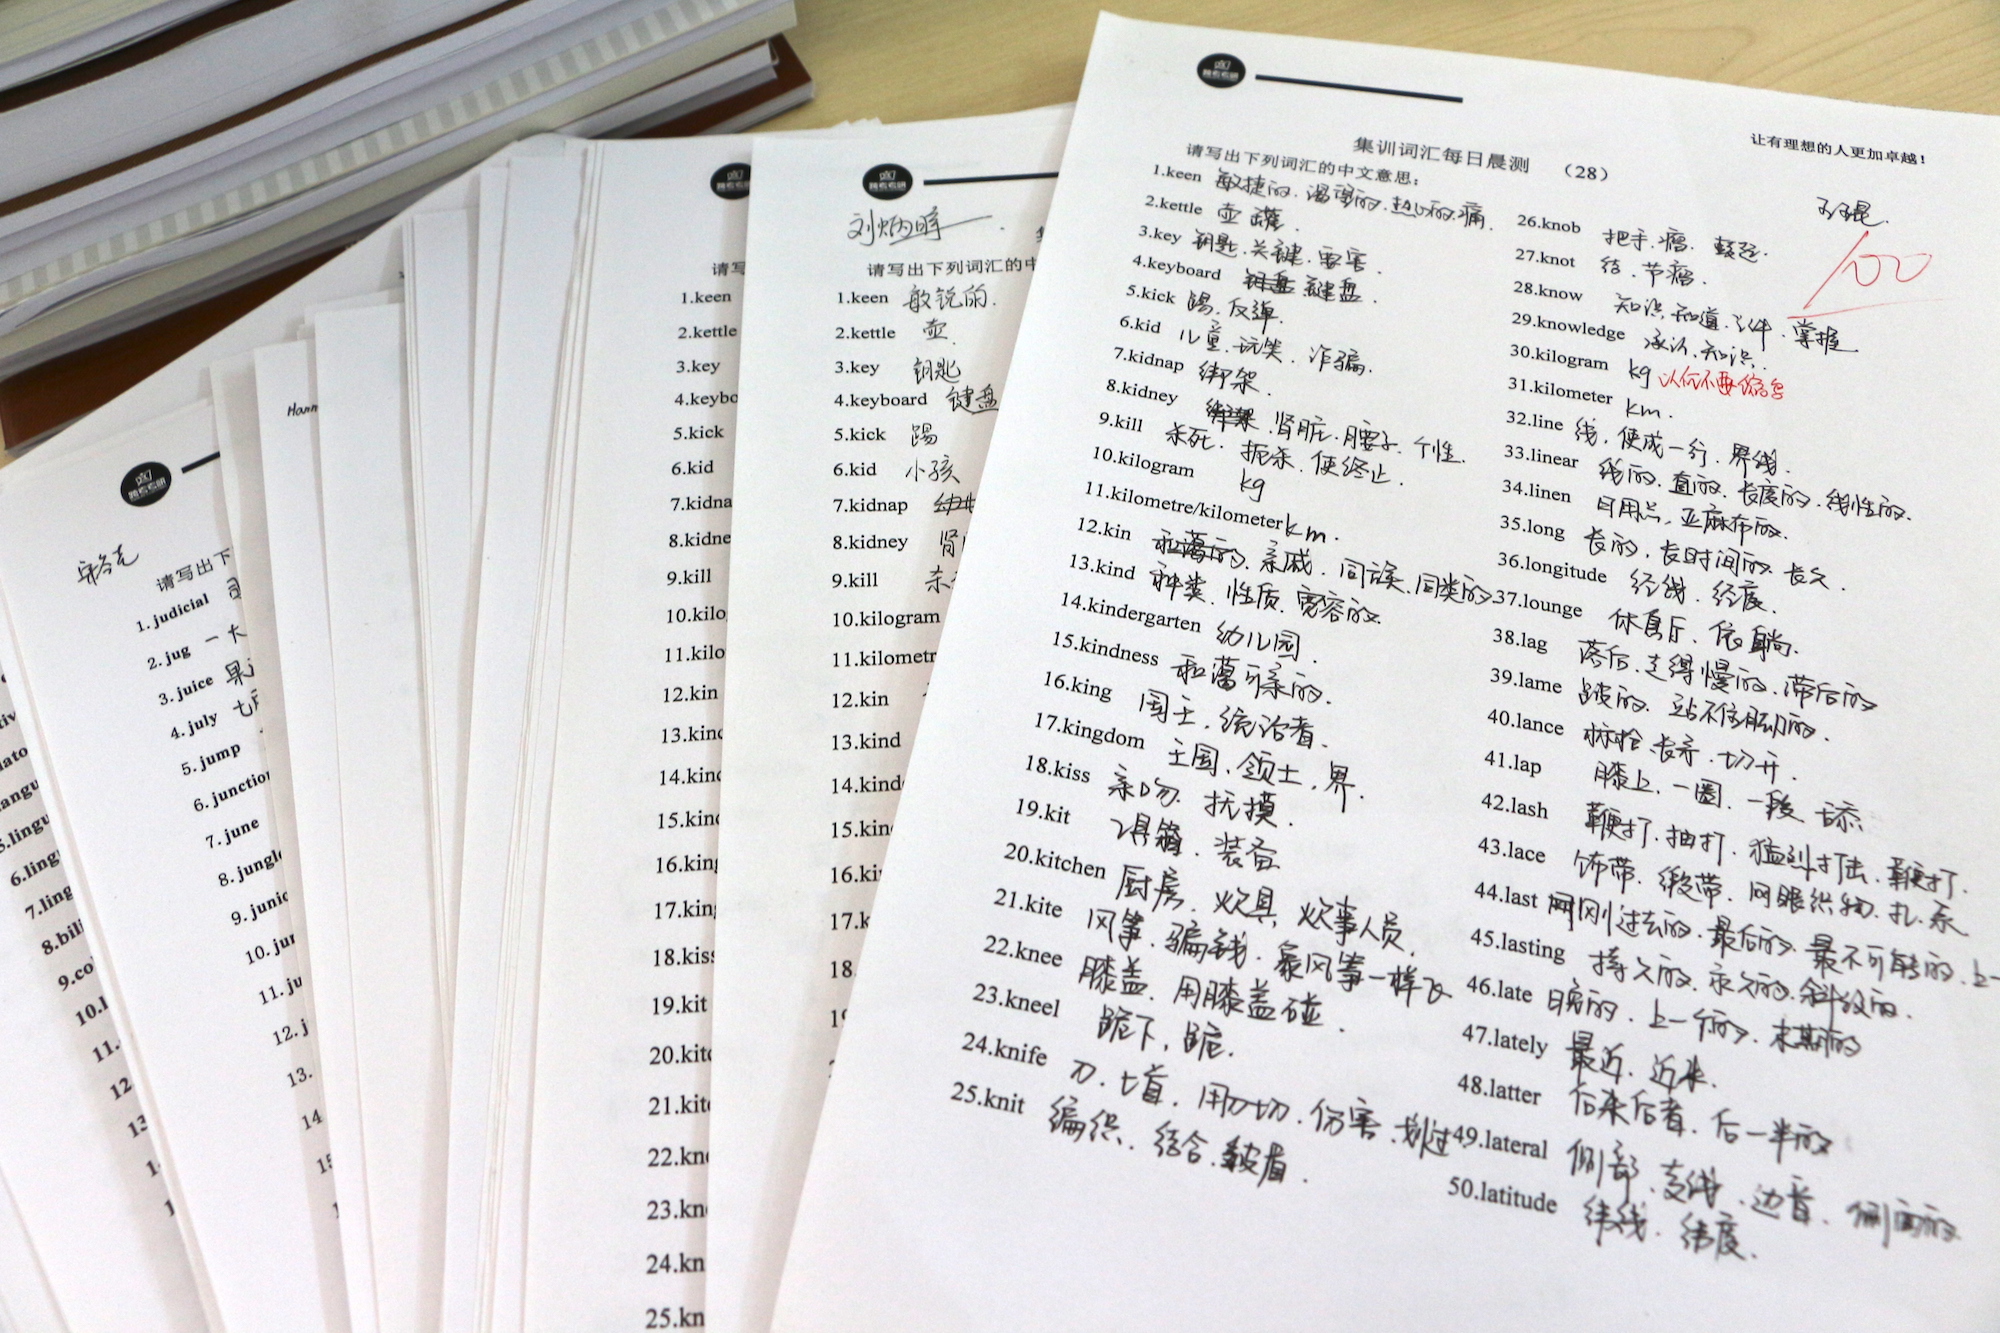 跨考考研
让有理想的人更加卓越！
集训词汇每日晨测 （28）
请写出下列词汇的中文意思：
100
1.keen 敏捷的.渴望的.热心的.痛.
2.kettle 壶 罐.
3.key 钥匙.关键.要害.
4.keyboard 键盘.
5.kick 踢.反弹.
6.kid 儿童.玩笑.诈骗.
7.kidnap 绑架.
8.kidney 肾脏.腰子.个性.
9.kill 杀死.扼杀.使终止.
10.kilogram kg
11.kilometre/kilometer km.
12.kin 和蔼的.亲戚.同族.同类的
13.kind 种类.性质.宽容的.
14.kindergarten 幼儿园.
15.kindness 和蔼可亲的.
16.king 国王.统治者.
17.kingdom 王国.领土.界.
18.kiss 亲吻.抚摸.
19.kit 工具箱.装备
20.kitchen 厨房.炊具.炊事人员.
21.kite 风筝.骗钱.像风筝一样飞
22.knee 膝盖.用膝盖碰.
23.kneel 跪下,跪.
24.knife 刀.匕首.用刀切.伤害.划过
25.knit 编织.结合.皱眉.
26.knob 把手.瘤.鼓起.
27.knot 结.节瘤.
28.know 知识.知道.了解.掌握
29.knowledge 承认.知识.
30.kilogram kg 以后不要缩写
31.kilometer km.
32.line 线.使成一行.界线.
33.linear 线的.直的.长度的.线性的.
34.linen 日用品,亚麻布的.
35.long 长的.长时间的.长久.
36.longitude 经线.经度.
37.lounge 休息厅.倚躺.
38.lag 落后.走得慢的.滞后的
39.lame 跛的.站不住脚的.
40.lance 标枪.长矛.切开.
41.lap 膝上.一圈.一段 舔
42.lash 鞭打.抽打.猛烈打击.鞭打.
43.lace 饰带.缎带.网眼织物.扎.系
44.last 刚过去的.最后的.最不可能的.上一
45.lasting 持久的.永久的.斜纹的.
46.late 晚的.上一个的.末期的
47.lately 最近.近来.
48.latter 后来后者.后一半的
49.lateral 侧部.支线.边音.侧面的
50.latitude 纬线.纬度.
跨考考研
刘炳晖
请写出下列词汇的中
1.keen 敏锐的.
2.kettle 壶.
3.key 钥匙
4.keyboard 键盘
5.kick 踢
6.kid 小孩
7.kidnap
8.kidney 肾
9.kill 杀
10.kilogram
11.kilometr
12.kin
13.kind
14.kind
15.kin
16.ki
17.k
18.
请写
1.keen
2.kettle
3.key
4.keybo
5.kick
6.kid
7.kidna
8.kidne
9.kill
10.kilo
11.kilo
12.kin
13.kind
14.kind
15.kind
16.king
17.king
18.kiss
19.kit
20.kitc
21.kite
22.kne
23.kn
24.kn
25.kn
跨考考研
请写出下
1. judicial
2. jug 一大
3. juice 果
4. july 七
5. jump
6. junction
7. june
8. jungle
9. junio
10. jun
11. ju
12. j
13.
14
15
5.lingu
6.ling
7.ling
8.bil
9.co
10.l
11.
12
13